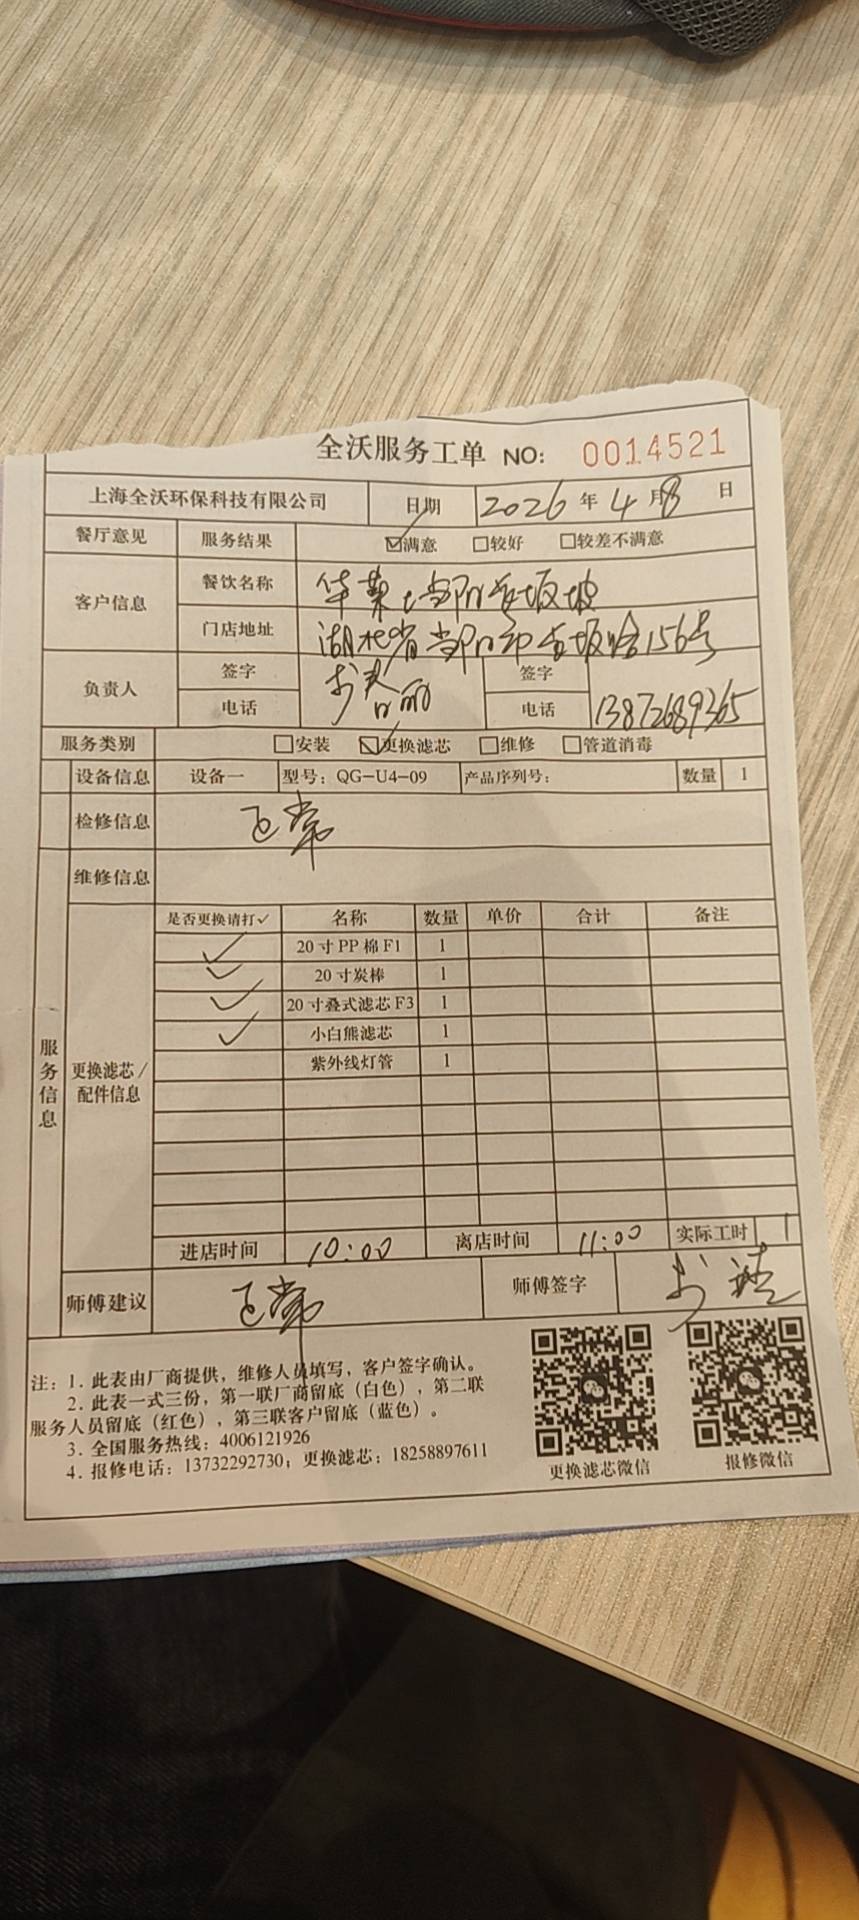 全沃服务工单 NO: 0014521
上海全沃环保科技有限公司 日期 2026 年 4 月 8 日
餐厅意见 服务结果 ☑满意 □较好 □较差不满意
客户信息 餐饮名称 华莱士当阳长坂坡
门店地址 湖北省当阳市长坂路156号
负责人 签字 签字
电话 电话 13872689365
服务类别 □安装 ☑更换滤芯 □维修 □管道消毒
设备信息 设备一 型号：QG-U4-09 产品序列号： 数量 1
检修信息 正常
维修信息
服务信息
更换滤芯/配件信息
是否更换请打✓ 名称 数量 单价 合计 备注
✓ 20寸PP棉F1 1
✓ 20寸炭棒 1
✓ 20寸叠式滤芯F3 1
✓ 小白熊滤芯 1
紫外线灯管 1
进店时间 10:00 离店时间 11:00 实际工时 1
师傅建议 正常 师傅签字
注：1．此表由厂商提供，维修人员填写，客户签字确认。
2．此表一式三份，第一联厂商留底（白色），第二联
服务人员留底（红色），第三联客户留底（蓝色）。
3．全国服务热线：4006121926
4．报修电话：13732292730；更换滤芯：18258897611
更换滤芯微信 报修微信